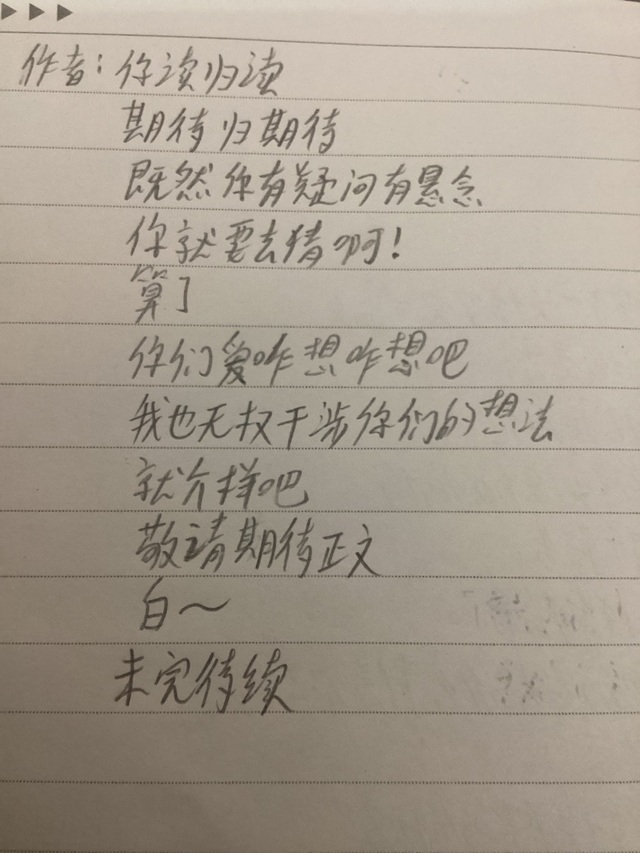 作者：你读归读
期待归期待
既然你有疑问有悬念
你就要去猜啊！
算了
你们爱咋想咋想吧
我也无权干涉你们的想法
就介样吧
敬请期待正文
白～
未完待续